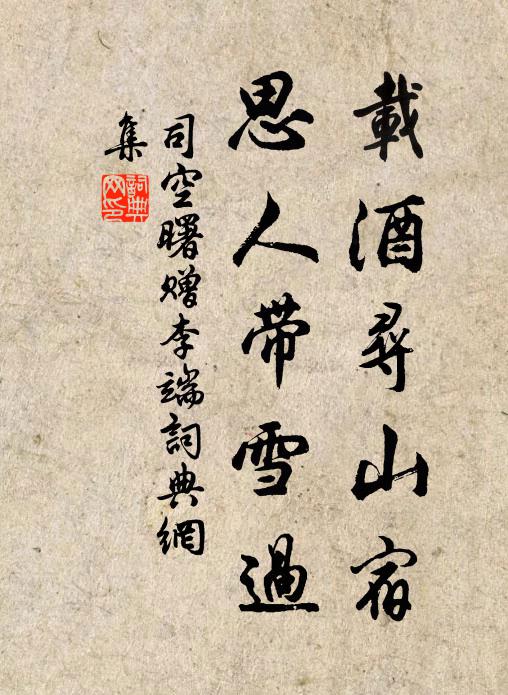 載酒尋山宿
思人帶雪過
司空曙贈李端詞典網
集
詞典
网印